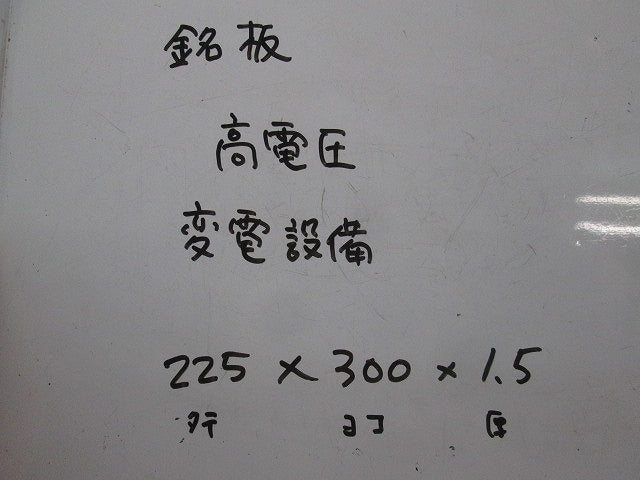 銘板
高電圧
変電設備
225 × 300 × 1.5
タテ ヨコ 厚